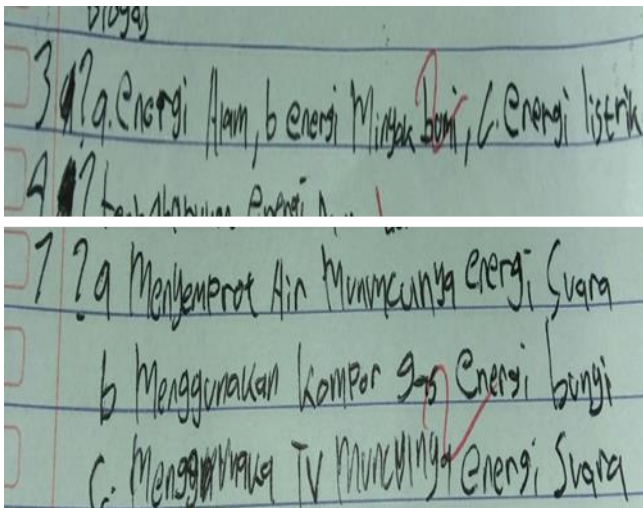 biogas
3 ? a. energi Alam, b energi Minyak bumi, c. energi listrik
4 ? energi
7 ? a Menyemprot Air Munumcunya energi Suara
b Menggunakan kompor gas energi bunyi
c. energi Suara TV